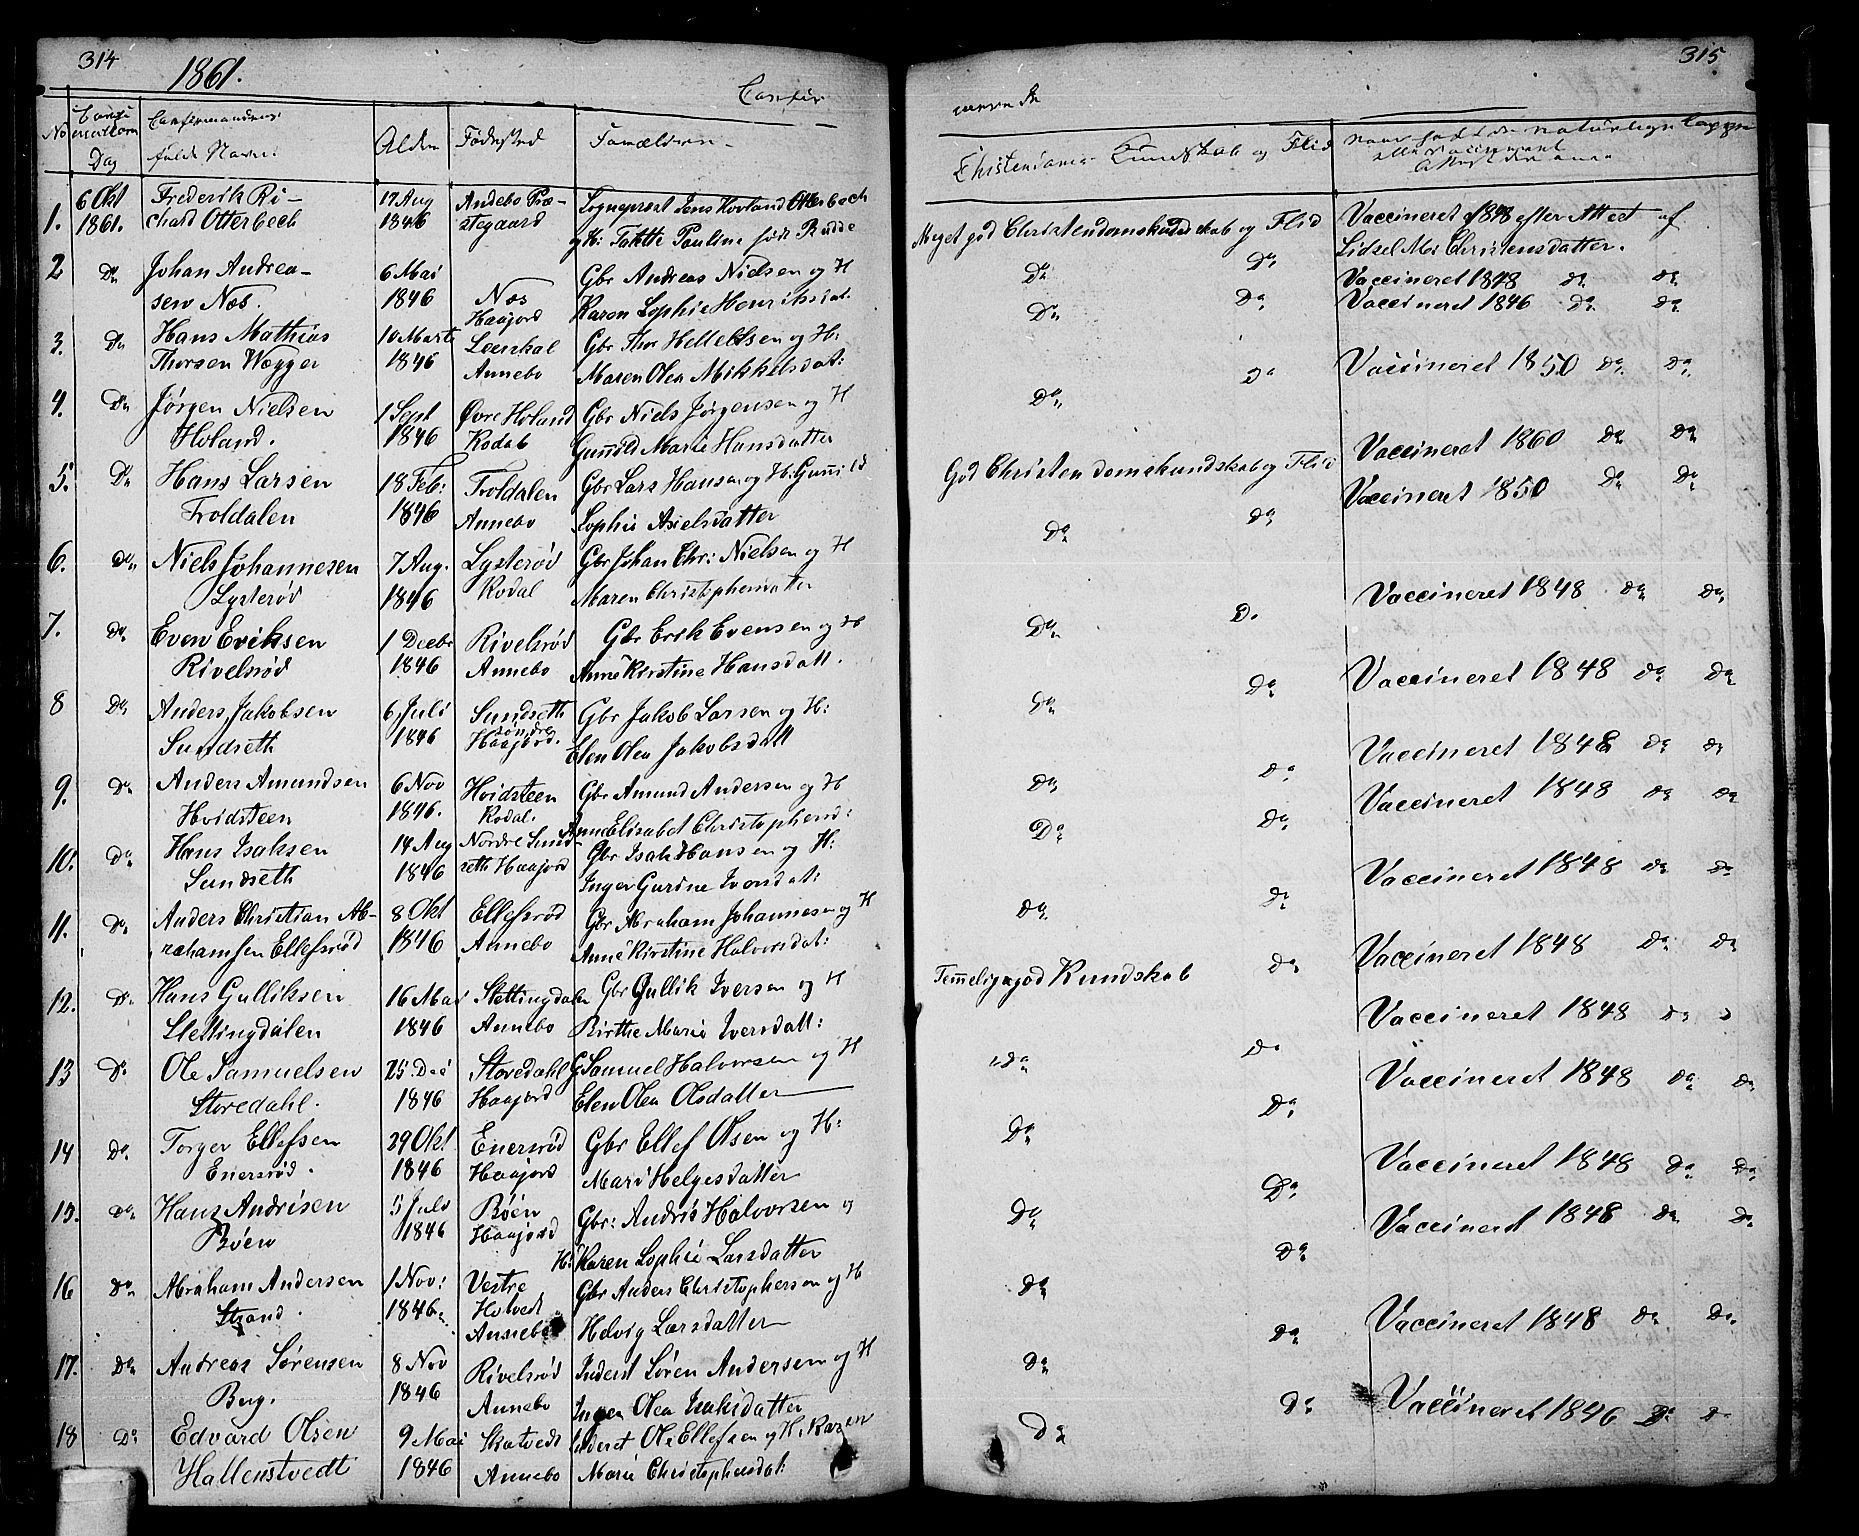 314
1861.
Confir
No
Confirmations Dag
Confirmandens fulde Navn.
Alder
Fødested
Forældrene
1. 6 Okt 1861. Frederik Ri- 17 Aug Andebo Præ- Sogneprest Jens Hovland Otterbech
chard Otterbech 1846 stegaard og H: Tahtte Pauline født Budde
2 Do Johan Andrea- 6 Mai Næs Gbr Andreas Nielsen og H
sen Næs. 1846 Haajord Karen Sophie Henriksdat
3. Do Hans Mathias 10 Marts Leerskal Gbr Thor Hellelsen og H:
Thorsen Wegger 1846 Annebo Maren Olea Mikkelsdat:
4. Do Jørgen Nielsen 1 Sept Øvre Holand Gbr Niels Jørgensen og H
Holand. 1846 Kodal Gunnild Marie Hansdatter
5. Do Hans Larsen 18 Feb: Troldalen Gbr Lars Hansen og H: Gunnild
Troldalen 1846 Annebo Sophie Axelsdatter
6. Do Niels Johannesen 7 Aug. Lysterød Gbr Johan Chr: Nielsen og H
Lysterød 1846 Kodal Maren Christophersdatter
7. Do Even Eriksen 1 Decbr Rivelsrød Gbr Erik Evensen og H
Rivelsrød 1846 Annebo Anne Kirstine Hansdatt.
8 Do Anders Jakobsen 6 Juli Sundseth Gbr Jakob Larsen og H:
Sundseth 1846 søndre Haajord. Elen Olea Jakobsdatt
9. Do Anders Amundsen 6 Nov Hvidsteen Gbr Amund Andersen og H
Hvidsteen 1846. Kodal. Anne Elisabet Christophersd:
10. Do Hans Isaksen 14 Aug Nordre Sund- Gbr Isak Hansen og H:
Sundseth 1846 seth Haajord Inger Gurine Iversdat:
11. Do Anders Christian Ab- 8 Okt Ellefsrød Gbr Abraham Johannesen og H
rahamsen Ellefsrød 1846 Annebo Anne Kirstine Halvorsdat:
12. Do Hans Gulliksen 16 Mai Slettingdalen Gbr Gullik Iversen og H
Slettingdalen 1846 Annebo Birthe Marie Iversdatt:
13 Do Ole Samuelsen 25 Dec Storedahl G Samuel Halvorsen og H
Storedahl. 1846 Haajord Elen Olea Olsdatter
14 Do Torger Ellefsen 29 Okt Enersrød Gbr Ellef Olsen og H:
Enersrød. 1846 Haajord Mari Helgesdatter
15. Do Hans Andrisen 5 Juli Bøen Gbr: Andris Halvorsen og
Bøen 1846 Haajord H: Karen Sophie Larsdatter
16 Do Abraham Andersen 1 Nov: Vestre Gbr Anders Christophersen og H
Strand. 1846. Hotvedt Annebo Helvig Larsdatter
17. Do Andreas Sørensen 8 Nov Rivelsrød Inderst Søren Andersen og H
Berg. 1846 Annebo Inger Olea Isaksdatter
18 Do Edvard Olsen 9 Mai Skatvedt Inderst Ole Ellefsen og H: Karen
Hallenstvedt 1846 Annebo Marie Christophersdat:
315
merede
Christendoms Kundskab og Flid
Naar havt de naturlige Kopper eller vaccineret
Meget god Christendomskundskab og Flid Vaccineret 1848 efter Attest af
Lidsel Mar Christensdatter.
Do Do Vaccineret 1848 Do Do
Do Do Vaccineret 1846 Do Do
Do Do Vaccineret 1850 Do Do
Vaccineret 1860 Do Do
God Christendomskundskab og Flid Vaccineret 1850 Do Do
Do Do
Do Do Vaccineret 1848 Do Do
Do Do Vaccineret 1848 Do Do
Do Do Vaccineret 1848 Do Do
Do Do Vaccineret 1848 Do Do
Do Do Vaccineret 1848 Do Do
Temmelig god Kundskab Do Vaccineret 1848 Do Do
Vaccineret 1848 Do Do
Do Do Vaccineret 1848 Do Do
Do Do Vaccineret 1848 Do Do
Do Do Vaccineret 1848 Do Do
Do Do Vaccineret 1848 Do Do
Do Do Vaccineret 1846 Do Do
Do